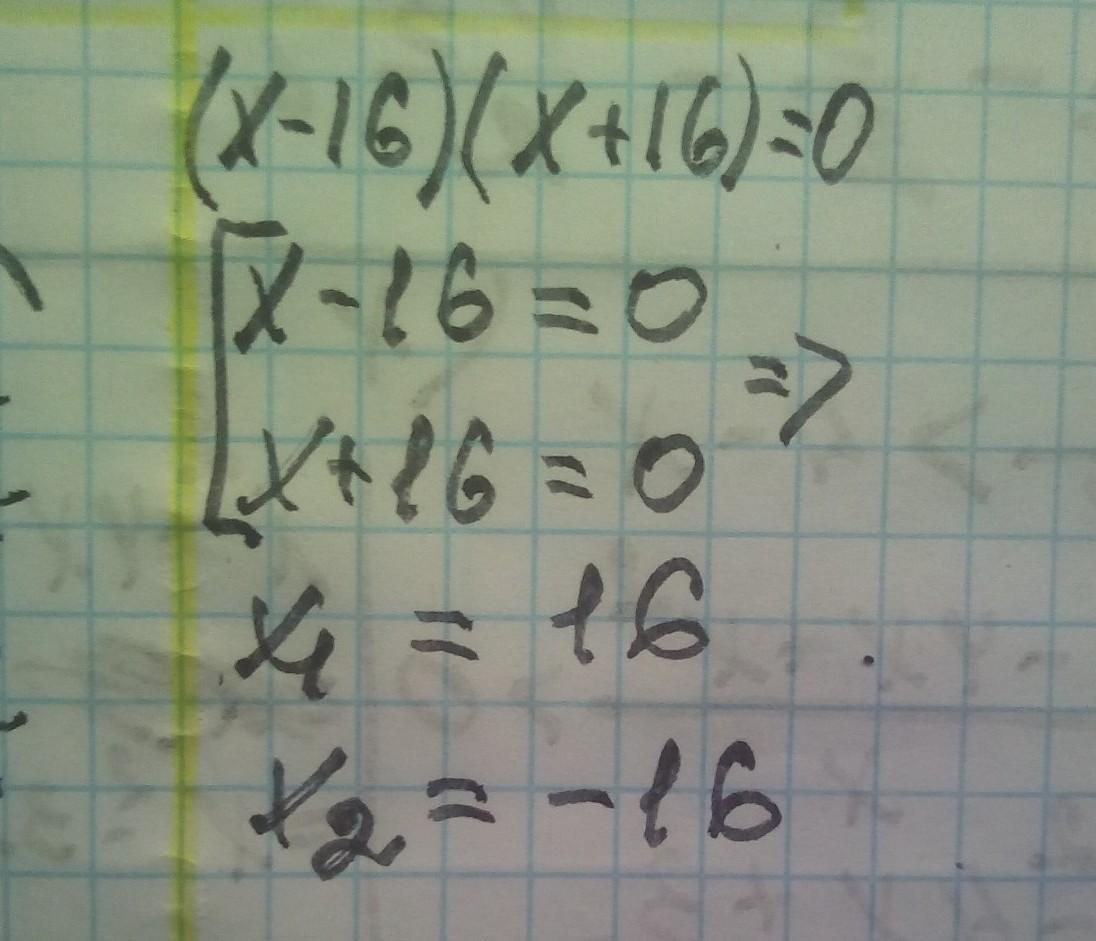 (x-16)(x+16)=0
[x-16=0
x+16=0 =>
x₁ = 16
x₂ = -16